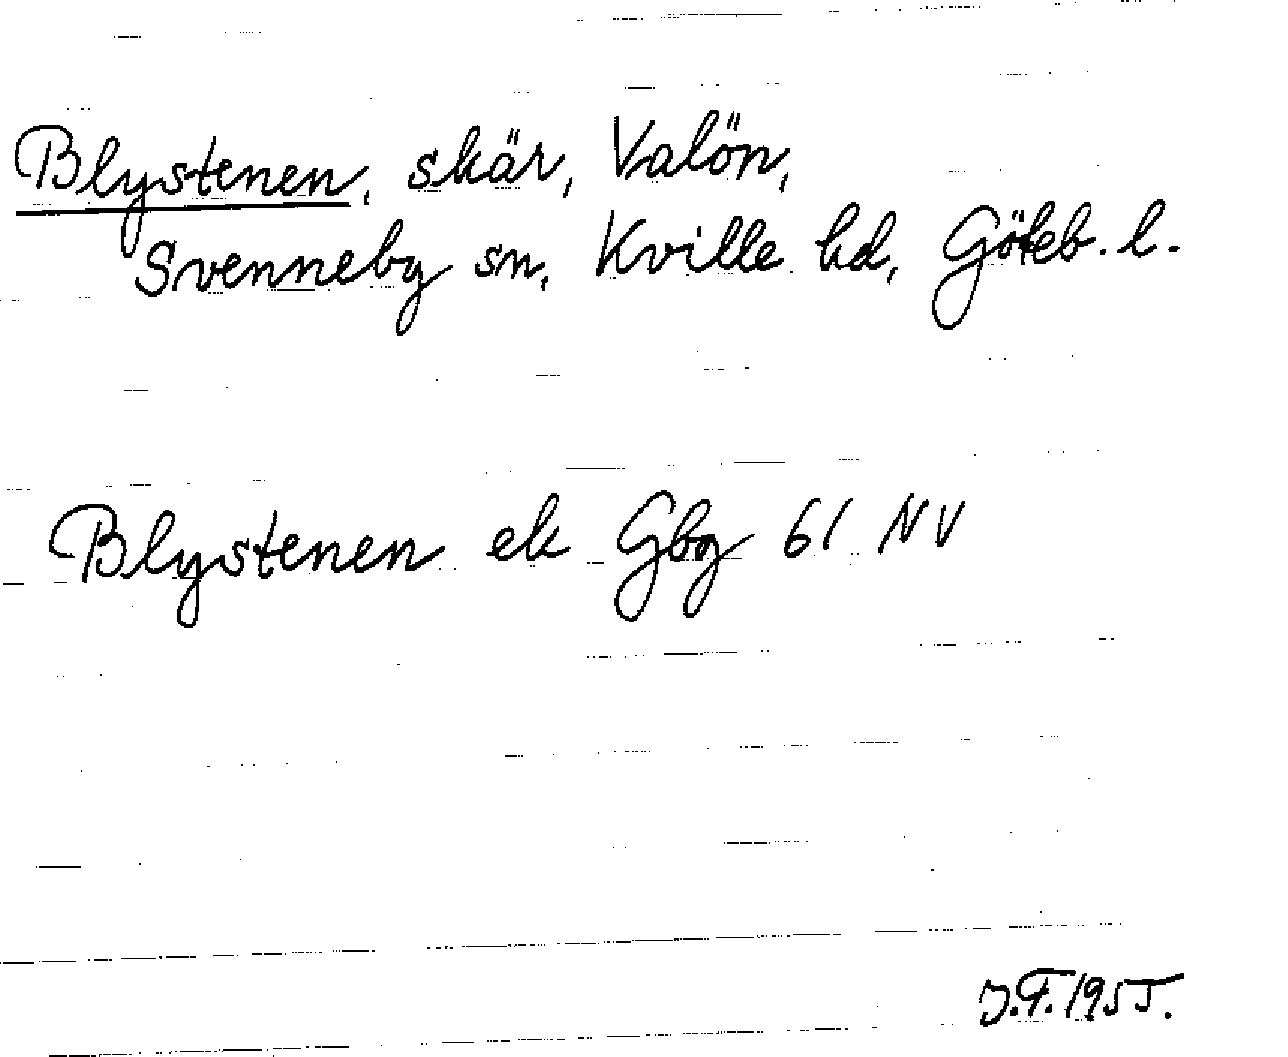 Blystenen, skär, Valön,
Svenneby sn, Kville hd, Göteb. l.
Blystenen ek Gbg 61 NV
J.F. 1955.